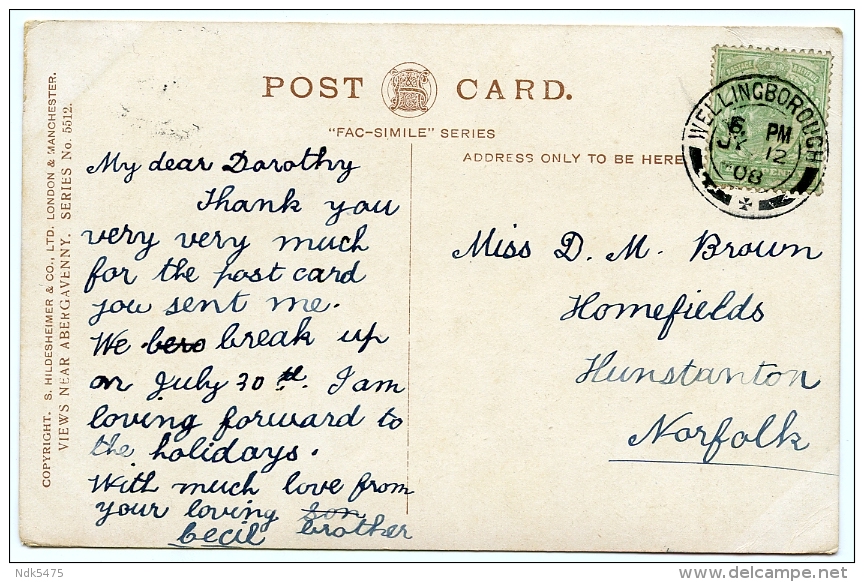 POST CARD.
"FAC-SIMILE" SERIES
ADDRESS ONLY TO BE HERE
COPYRIGHT. S. HILDESHEIMER & CO., LTD. LONDON & MANCHESTER.
VIEWS NEAR ABERGAVENNY. SERIES No. 5512.
WELLINGBOROUGH
6 PM
JY 12
08
My dear Dorothy
Thank you
very very much
for the post card
you sent me.
We break up
on July 30th. I am
loving forward to
the holidays.
With much love from
your loving son
Cecil brother
Miss D. M. Brown
Homefields
Hunstanton
Norfolk
Ndk5475